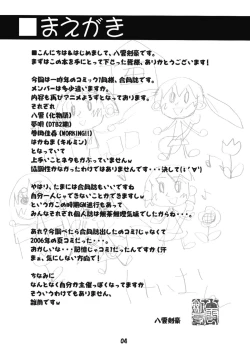 ■まえがき
■こんにちは＆はじめまして、八雲剣豪です。
まずはこの本を手にとって下さった皆様、ありがとうございます!
今回は一昨年のコミック1同様、合同誌です。
メンバーは多少違いますか。
内容も再びアニメよろずとなっております。
それぞれ
八雲 (化物語)
夢唄 (DTB2期)
巻岡佳春 (WORKING!!)
はかわま (キルミン)
となっていて
上手いことネタもかぶっていませんw
協調性がなかったわけではありませんです・・・決して(;´∀`)
やはり、たまには合同誌もいいですね
自分一人じゃできないことができますしw
というかこの時期GK進行もあって
みんなそれぞれ個人誌は無茶無理気味でしたからね・・・。
あれ?今調べたら合同誌出したのコミ1じゃなくて
2006年の夏コミだった・・・。
おかしいな・・・、記憶じゃコミ1だったんですか(汗
まぁ、気にしない方向で!
ちなみに
なんとなく自分か主催っぽくなってますか
そういうわけでもありません、
謎誌ですw
八雲剣豪
04